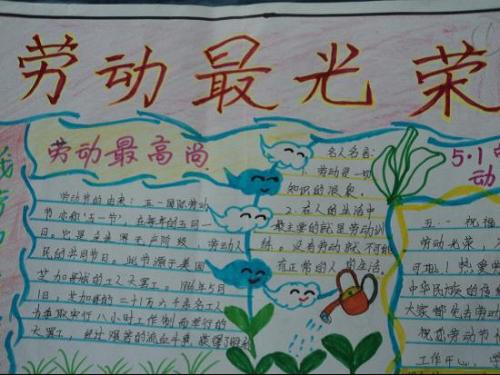 劳动最光荣
劳动最高尚
劳动节的由来：五一国际劳动
节亦称"五一节"，在每年的五月一
日。它是全世界无产阶级、劳动人
民的共同节日。此节源于美国
芝加哥城的工人大罢工。1886年5月
1日，芝加哥的二十一万六千余名工人
为争取实行八小时工作制而举行的
大罢工，经过艰苦的流血斗争，获得了胜利
名人名言：
1. 劳动是一切
知识的源泉。
2. 在人的生活中
最主要的就是劳动训
练。没有劳动就不可能
有正常的人的生活。
5·1
动
五一祝福
劳动光荣，
可耻！热爱
中华民族的传
大家都免去劳动
祝您劳动节
工作开心，